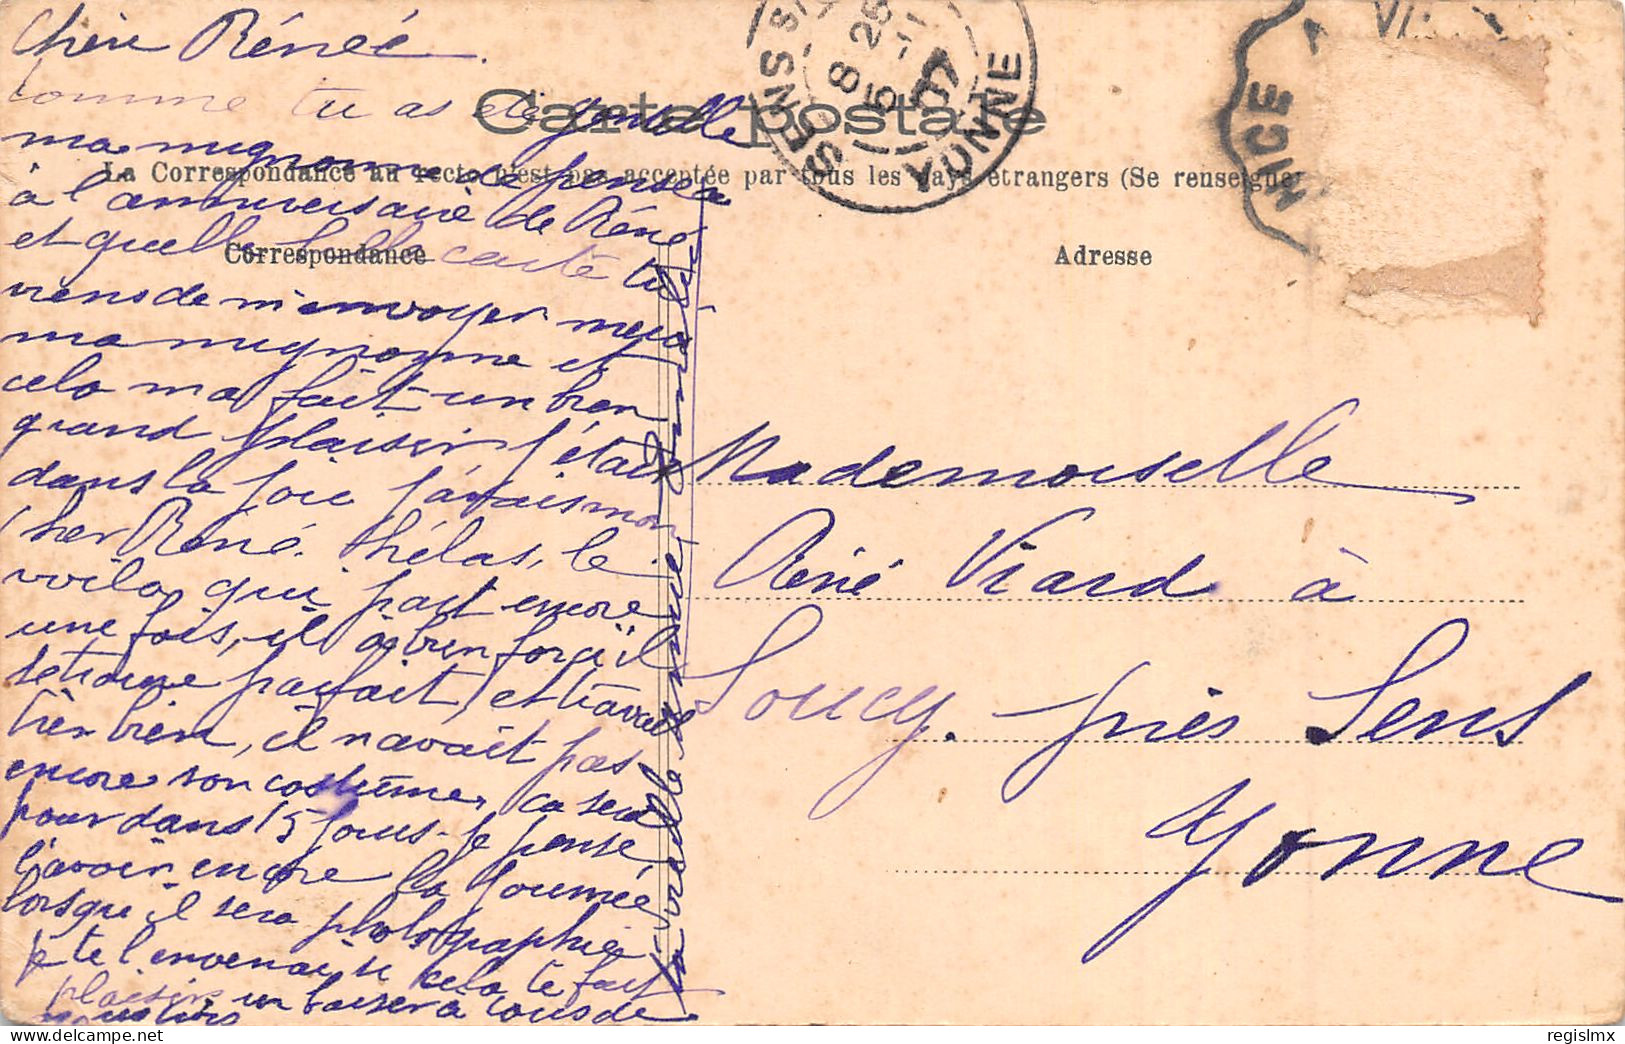 Chère Rénée
Comme tu as été gentille
ma mignonne de penser
à l'anniversaire de Réné
et quelle belle carte tu
viens de m'envoyer merci
ma mignonne et
cela ma fait un bien
grand plaisir j'étais
dans la joie j'avais mon
cher Réné. hélas, le
voila qui part encore
une fois, il a bien forci il
se trouve parfait et travaille
très bien, il n'avait pas
encore son costume, ca sera
pour dans 15 jours. Je pense
l'avoir encore la journée
lorsqu'il sera photographié
je te l'enverrai si cela te fait
plaisir un baiser à tous de
Carte postale
La Correspondance au recto n'est pas acceptée par tous les pays étrangers (Se renseigner
Correspondance
Adresse
SENS
YONNE
8 26
5 -1
07
NICE
Mademoiselle
Réné Viard à
Soucy. près Sens
Yonne
delcampe.net
regislmx